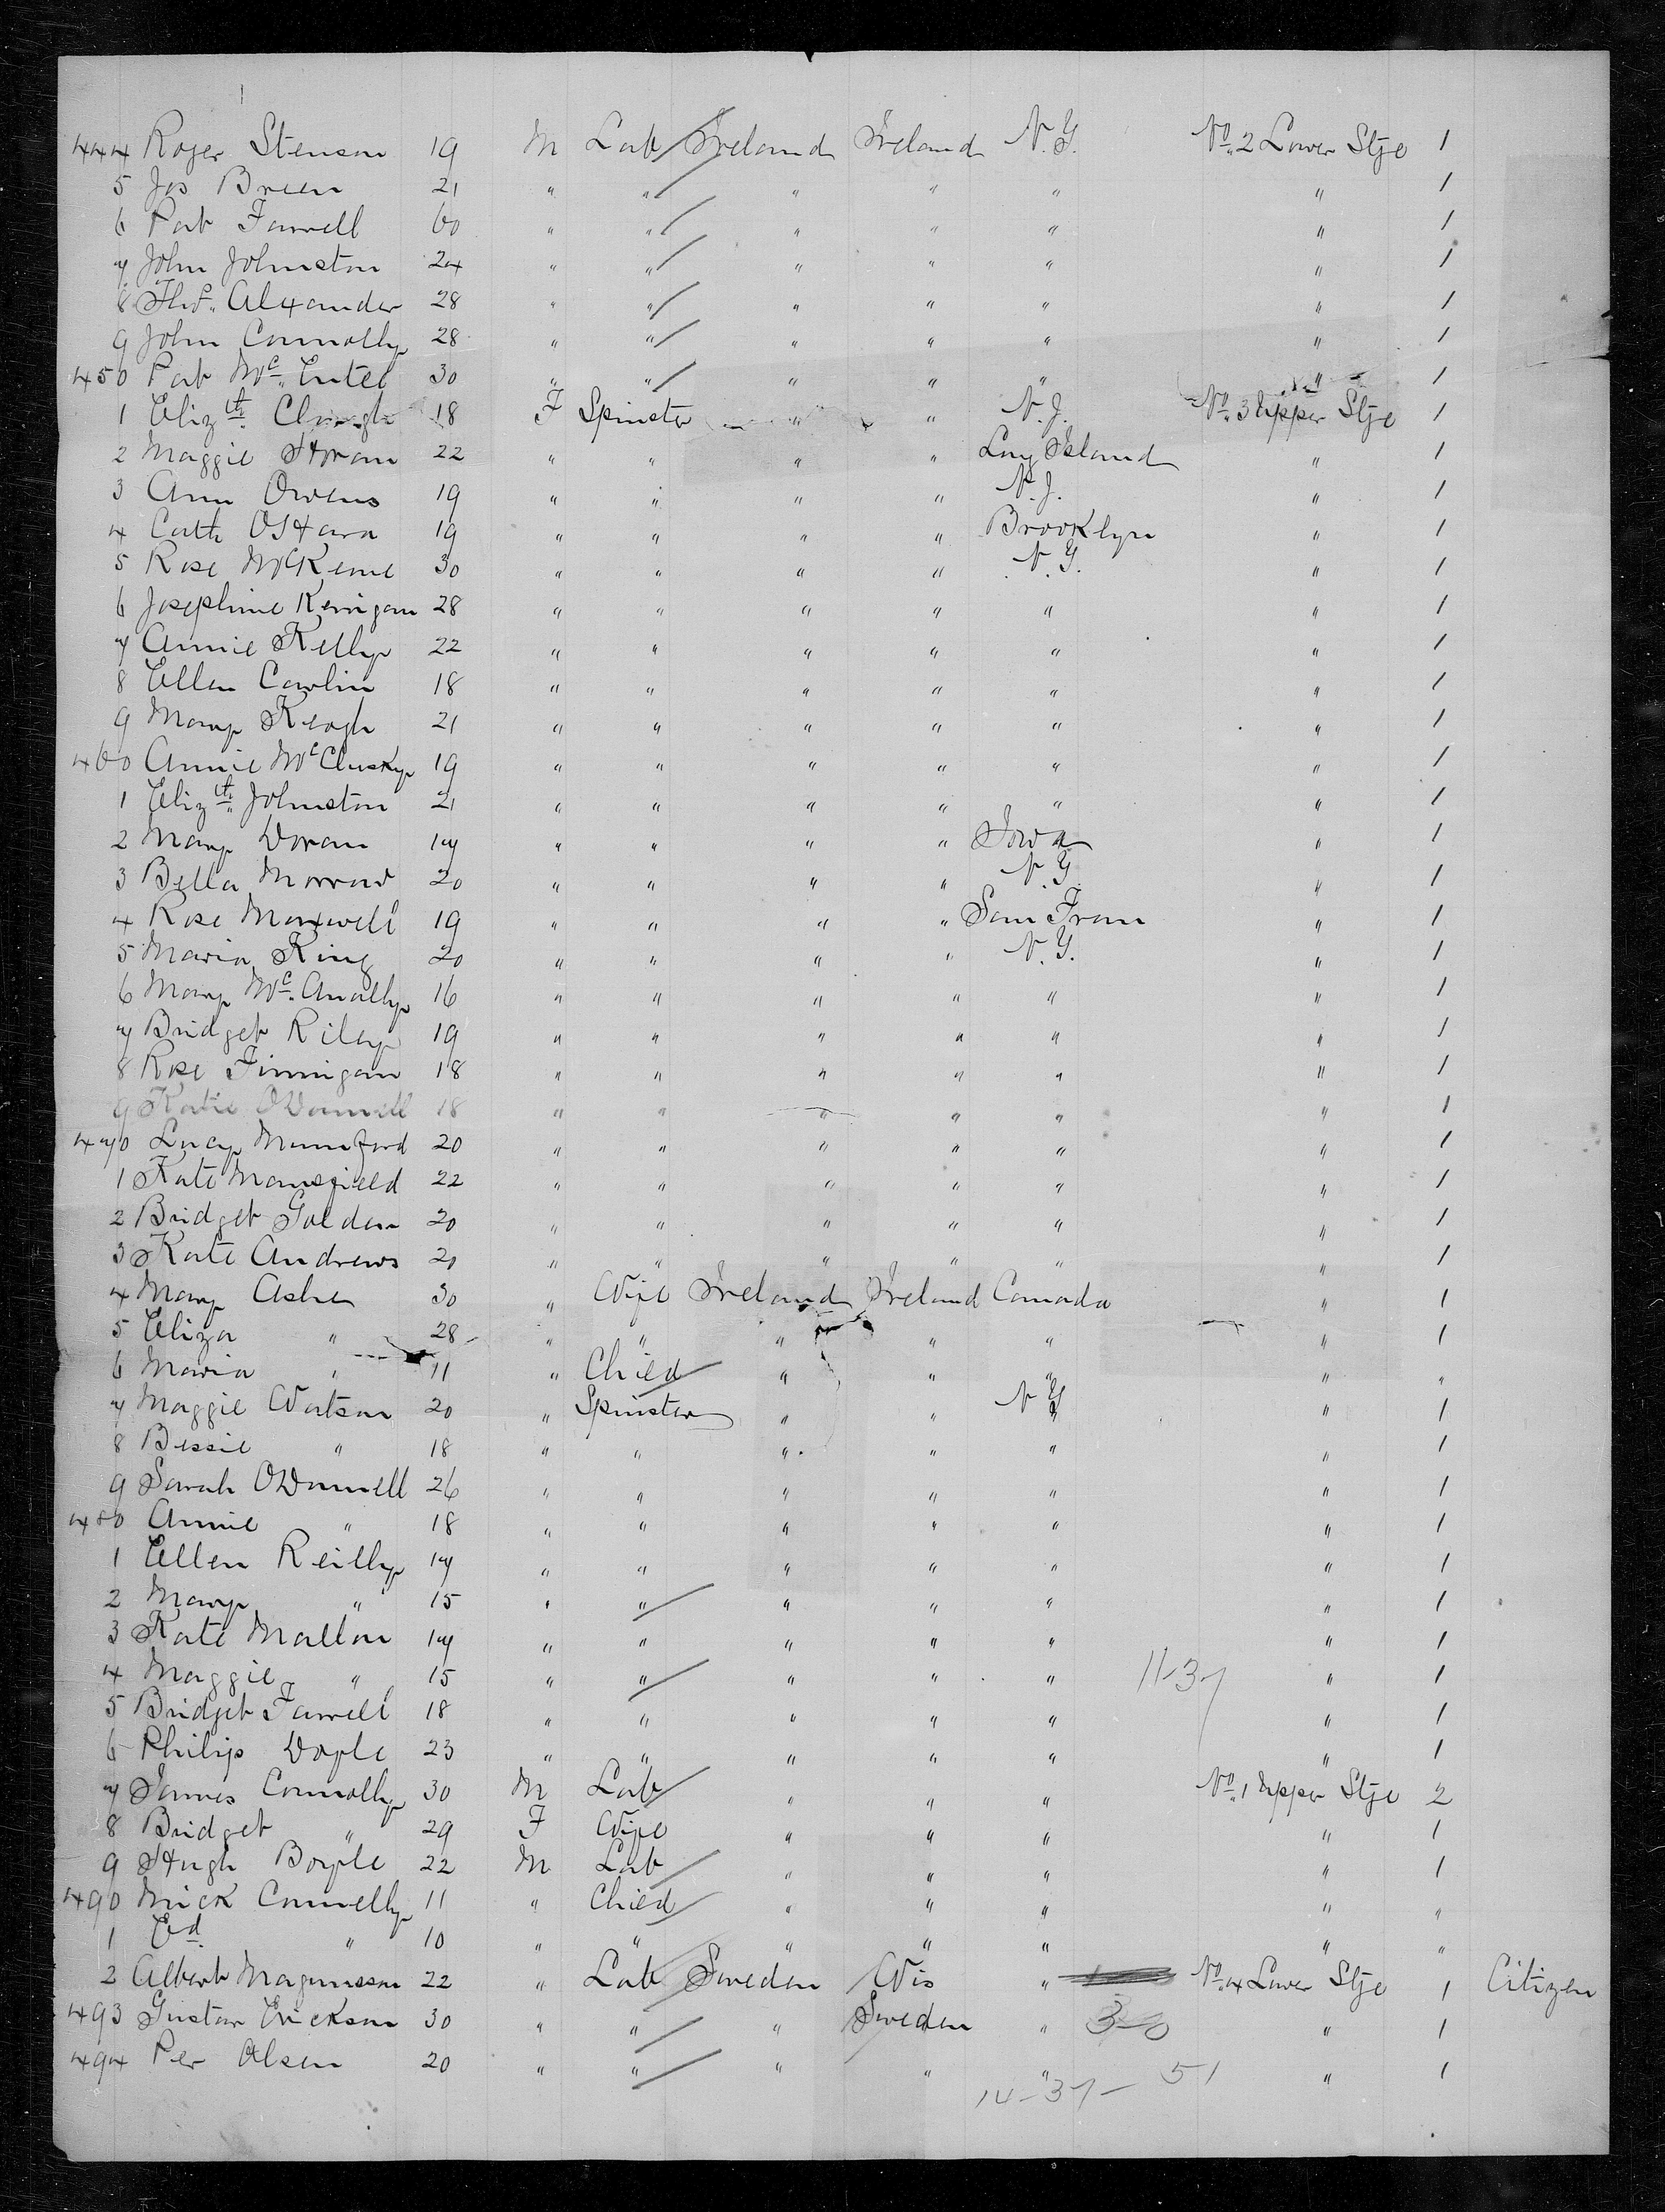 444 Roger Stenson 19 M Lab Ireland Ireland N.Y. No. 2 Lower Stge 1
5 Jos Breen 21 " " " " " " 1
6 Pat Farrell 60 " " " " " " 1
7 John Johnston 24 " " " " " " 1
8 Thos. Alexander 28 " " " " " " 1
9 John Connolly 28 " " " " " " 1
450 Pat Mc. Entee 30 " " " " " " 1
1 Elizth. 18 F Spinster " " N.J. No. 3 Upper Stge 1
2 Maggie Horan 22 " " " " Long Island " 1
3 Ann Owens 19 " " " " N.J. " 1
4 Cath OHara 19 " " " " Brooklyn " 1
5 Rose McKenne 30 " " " " N.Y. " 1
6 Josephine Kerrigan 28 " " " " " " 1
7 Annie Kelly 22 " " " " " " 1
8 Ellen Carlin 18 " " " " " " 1
9 Mary Keogh 21 " " " " " " 1
460 Annie McClusky 19 " " " " " " 1
1 Elizth. Johnston 21 " " " " " " 1
2 Mary Doran 17 " " " " Iowa " 1
3 Bella Morrow 20 " " " " N.Y. " 1
4 Rose Maxwell 19 " " " " San Fran " 1
5 Maria King 20 " " " " N.Y. " 1
6 Mary Mc. Anally 16 " " " " " " 1
7 Bridget Riley 19 " " " " " " 1
8 Rose Finnigan 18 " " " " " " 1
9 Katie ODonnell 18 " " " " " " 1
470 Lucy Mumford 20 " " " " " " 1
1 Kate Mansfield 22 " " " " " " 1
2 Bridget Golden 20 " " " " " " 1
3 Kate Andrews 20 " " " " " " 1
4 Mary Ashe 30 " Wife Ireland Ireland Canada " 1
5 Eliza " 28 " " " " " " 1
6 Maria " 11 " Child " " " " "
7 Maggie Watson 20 " Spinster " " N Y " 1
8 Bessie " 18 " " " " " " 1
9 Sarah ODonnell 26 " " " " " " 1
480 Annie " 18 " " " " " " 1
1 Ellen Reilly 17 " " " " " " 1
2 Mary " 15 " " " " " " 1
3 Kate Mallon 17 " " " " " " 1
4 Maggie " 15 " " " " " 11-37 " 1
5 Bridget Farrell 18 " " " " " " 1
6 Philip Doyle 23 " " " " " " 1
7 James Connolly 30 M Lab " " " No. 1 Upper Stge 2
8 Bridget " 29 F Wife " " " " 1
9 Hugh Boyle 22 M Lab " " " " 1
490 Mick Connelly 11 " Child " " " " "
1 Ed. " 10 " " " " " " "
2 Albert Magnusson 22 " Lab Sweden Wis " No. 4 Lower Stge 1 Citizen
493 Gustav Erickson 30 " " " Sweden " 30 " 1
494 Per Olsen 20 " " " " " " 1
14-37- 51